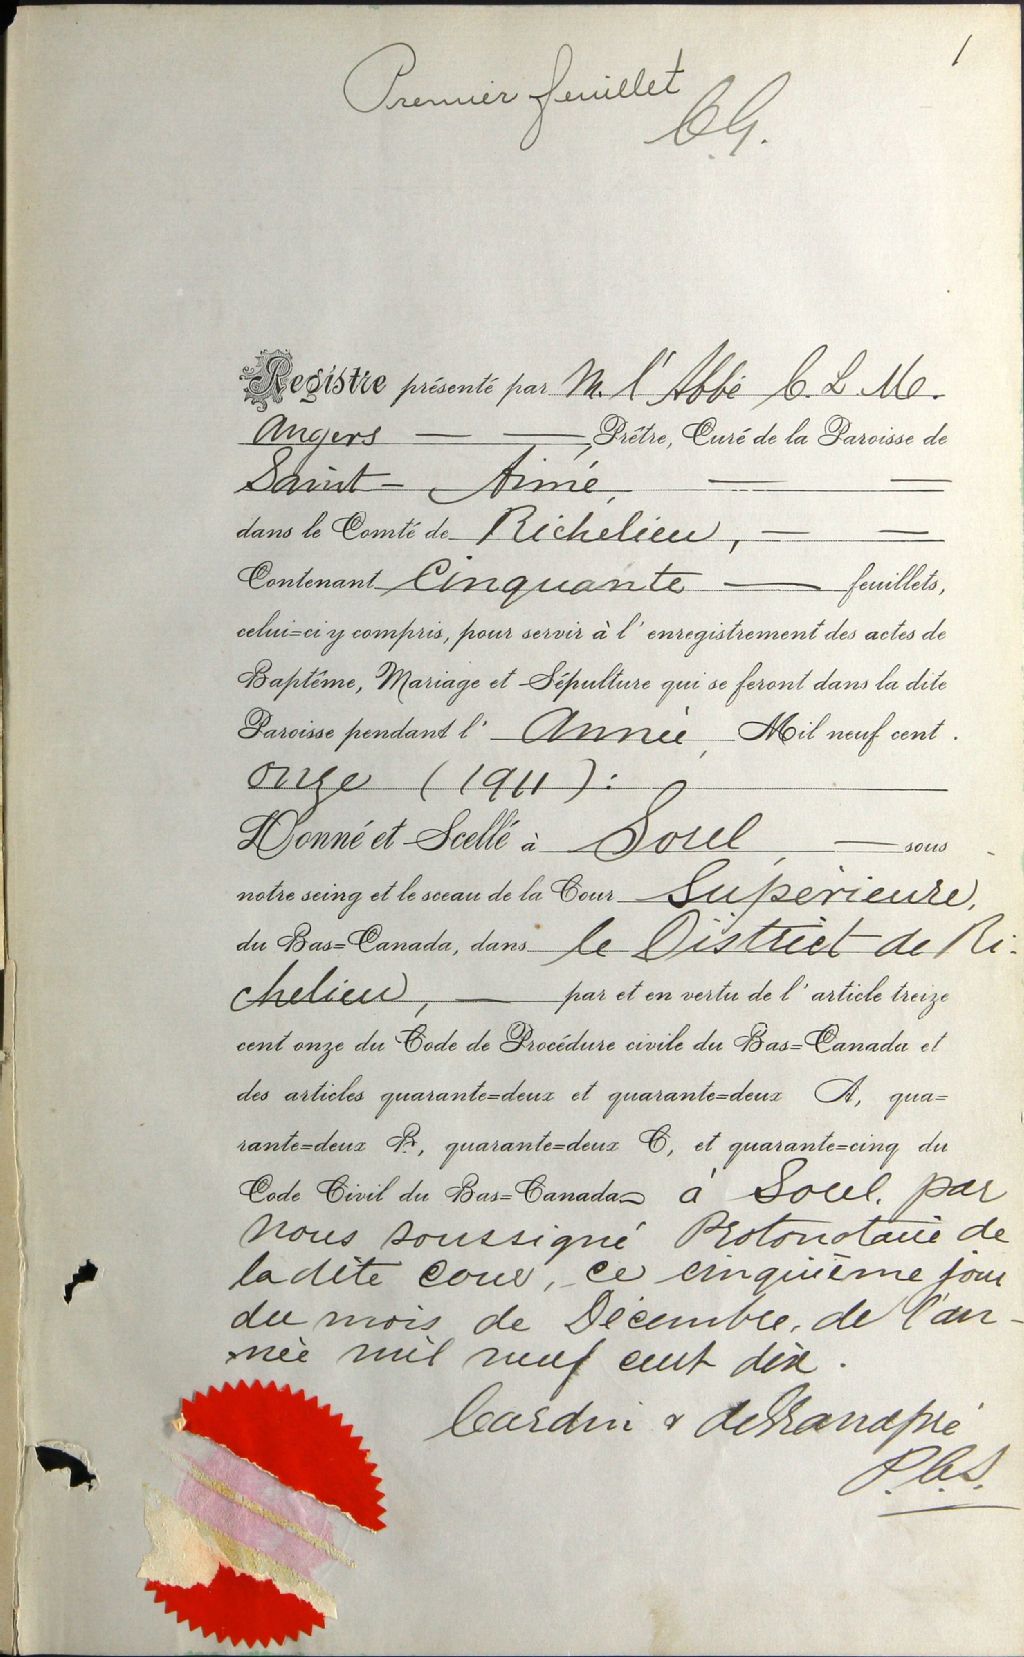 1
Premier feuillet
C G.
Registre présenté par M. l'Abbé C. L. M.
Angers — — , Prêtre, Curé de la Paroisse de
Saint-Aimé, — —
dans le Comté de Richelieu, — —
Contenant Cinquante — feuillets,
celui=ci y compris, pour servir à l'enregistrement des actes de
Baptême, Mariage et Sépulture qui se feront dans la dite
Paroisse pendant l' Année, Mil neuf cent.
onze (1911):
Donné et Scellé à Sorel, — sous
notre seing et le sceau de la Cour Supérieure,
du Bas=Canada, dans le District de Ri-
chelieu, — par et en vertu de l'article treize
cent onze du Code de Procédure civile du Bas=Canada et
des articles quarante=deux et quarante=deux A, qua=
rante=deux B, quarante=deux C, et quarante=cinq du
Code Civil du Bas=Canada à Sorel. par
nous soussigné Protonotaire de
la dite cour, ce cinquième jour
du mois de Décembre, de l'an-
née mil neuf cent dix.
Cardin & deGrandpré
P.C.S.